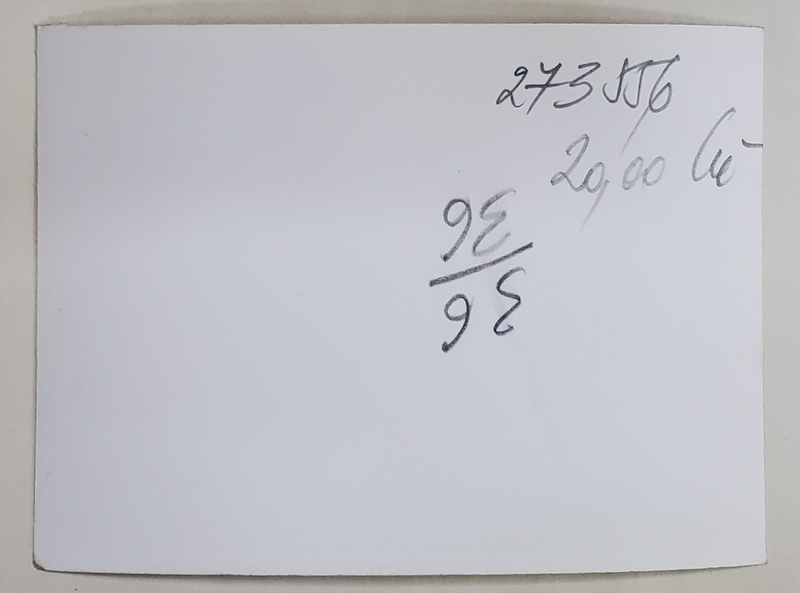 273556
20,00
36
36